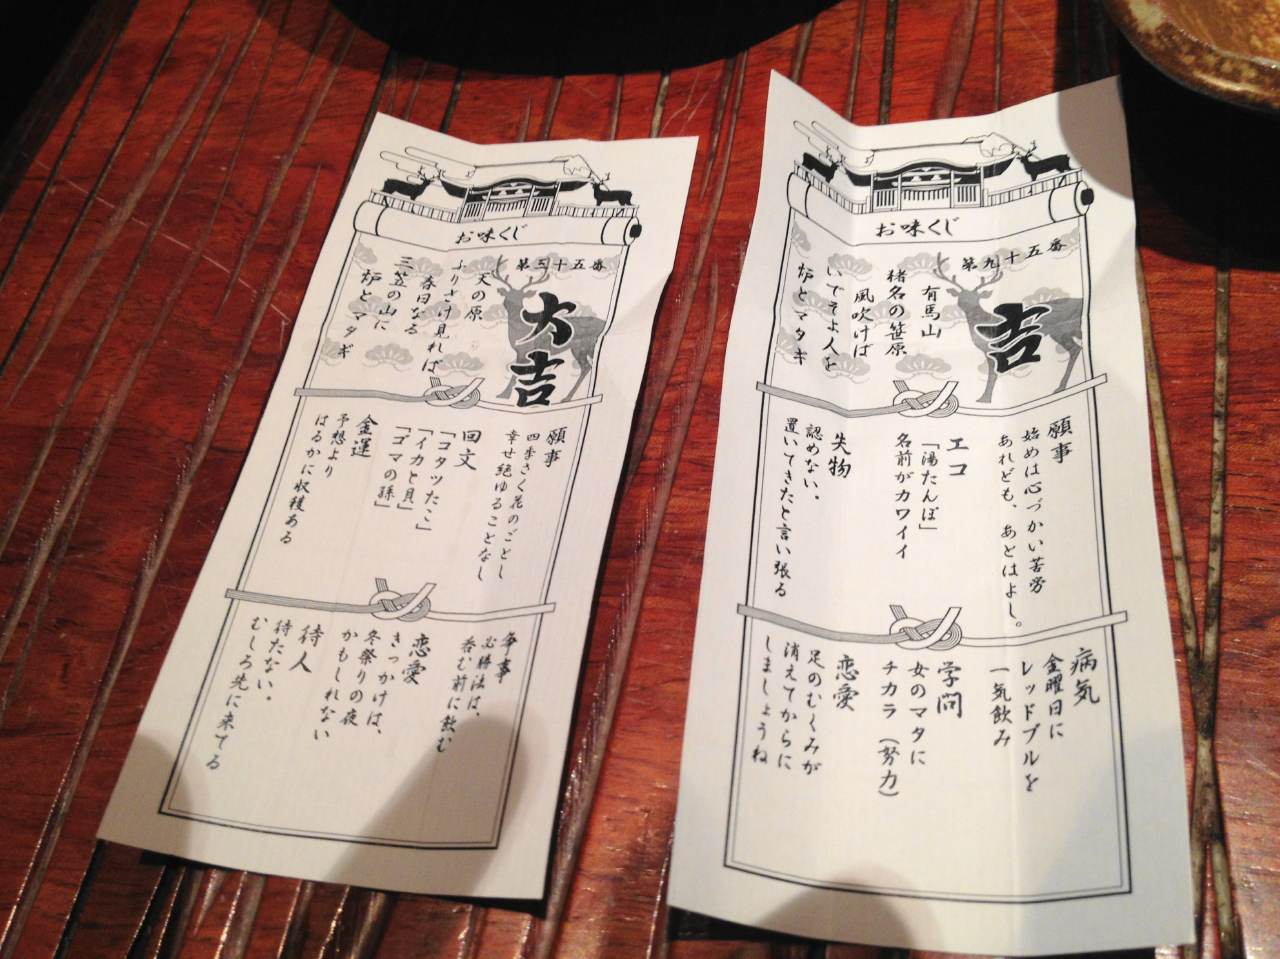 お味くじ
第三十五番
大吉
天の原
ふりさけ見れば
春日なる
三笠の山に
炉とマタギ
願事
四季さく花のごとし
幸せ絶ゆることなし
回文
「コタツたこ」
「イカと貝」
「ゴマの孫」
金運
予想より
はるかに収穫ある
争事
必勝法は、
呑む前に飲む
恋愛
きっかけは、
冬祭りの夜
かもしれない
待人
待たない。
むしろ先に来てる
お味くじ
第九十五番
吉
有馬山
猪名の笹原
風吹けば
いでそよ人を
炉とマタギ
願事
始めは心づかい苦労
あれども、あとはよし。
エコ
「湯たんぽ」
名前がカワイイ
失物
認めない。
置いてきたと言い張る
病気
金曜日に
レッドブルを
一気飲み
学問
女のマタに
チカラ(努力)
恋愛
足のむくみが
消えてからに
しましょうね